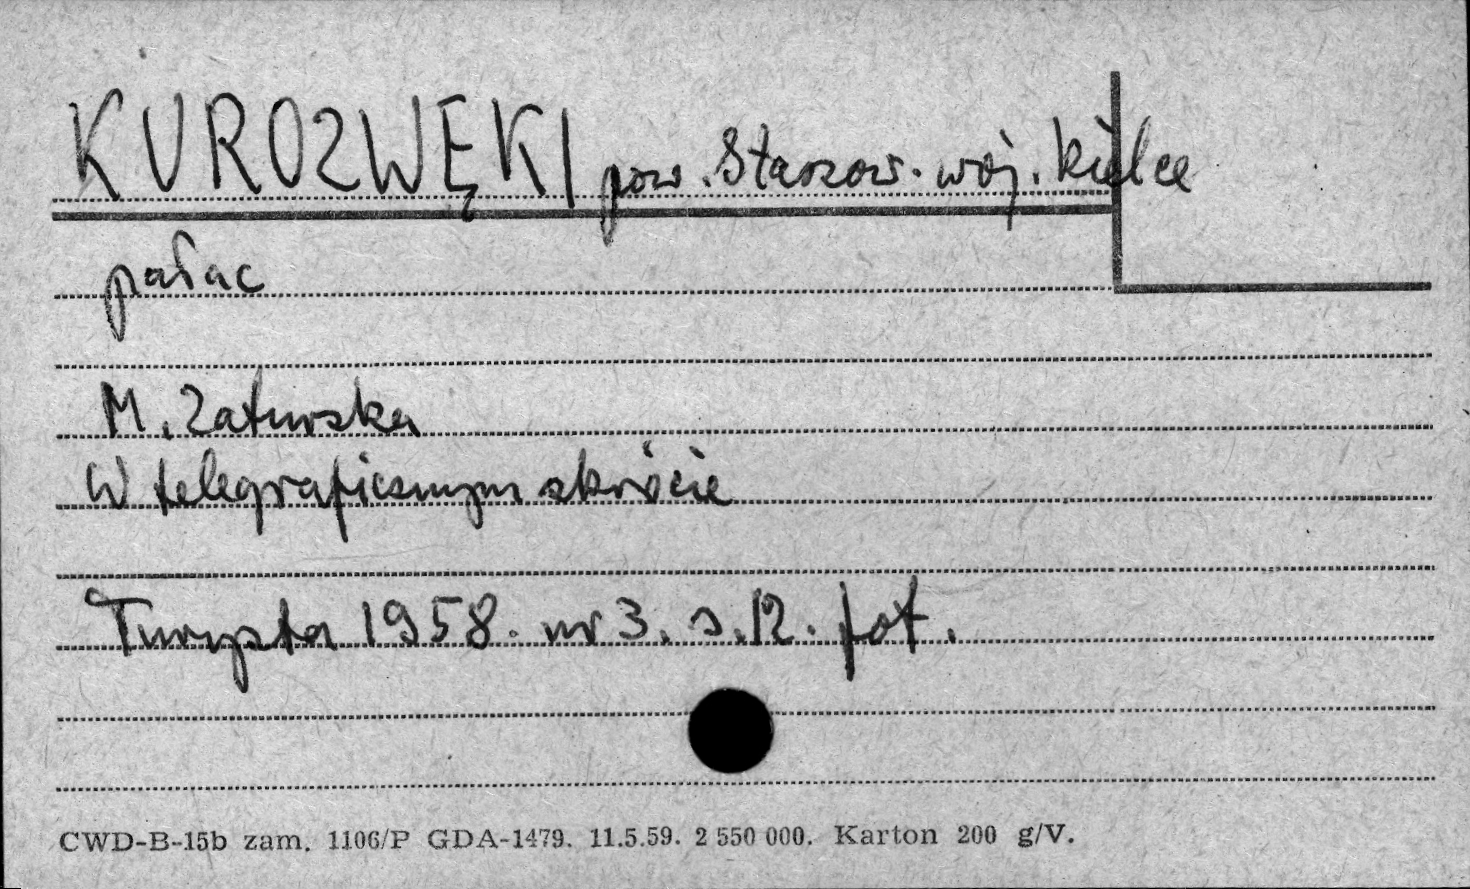 KUROZWĘKI pow. Staszow. woj. Kielce
pałac
M. Zaturska
W telegraficznym skrócie
Turysta 1958. nr 3. s. 12. fot.
CWD-B-15b zam. 1106/P GDA-1479. 11.5.59. 2 550 000. Karton 200 g/V.